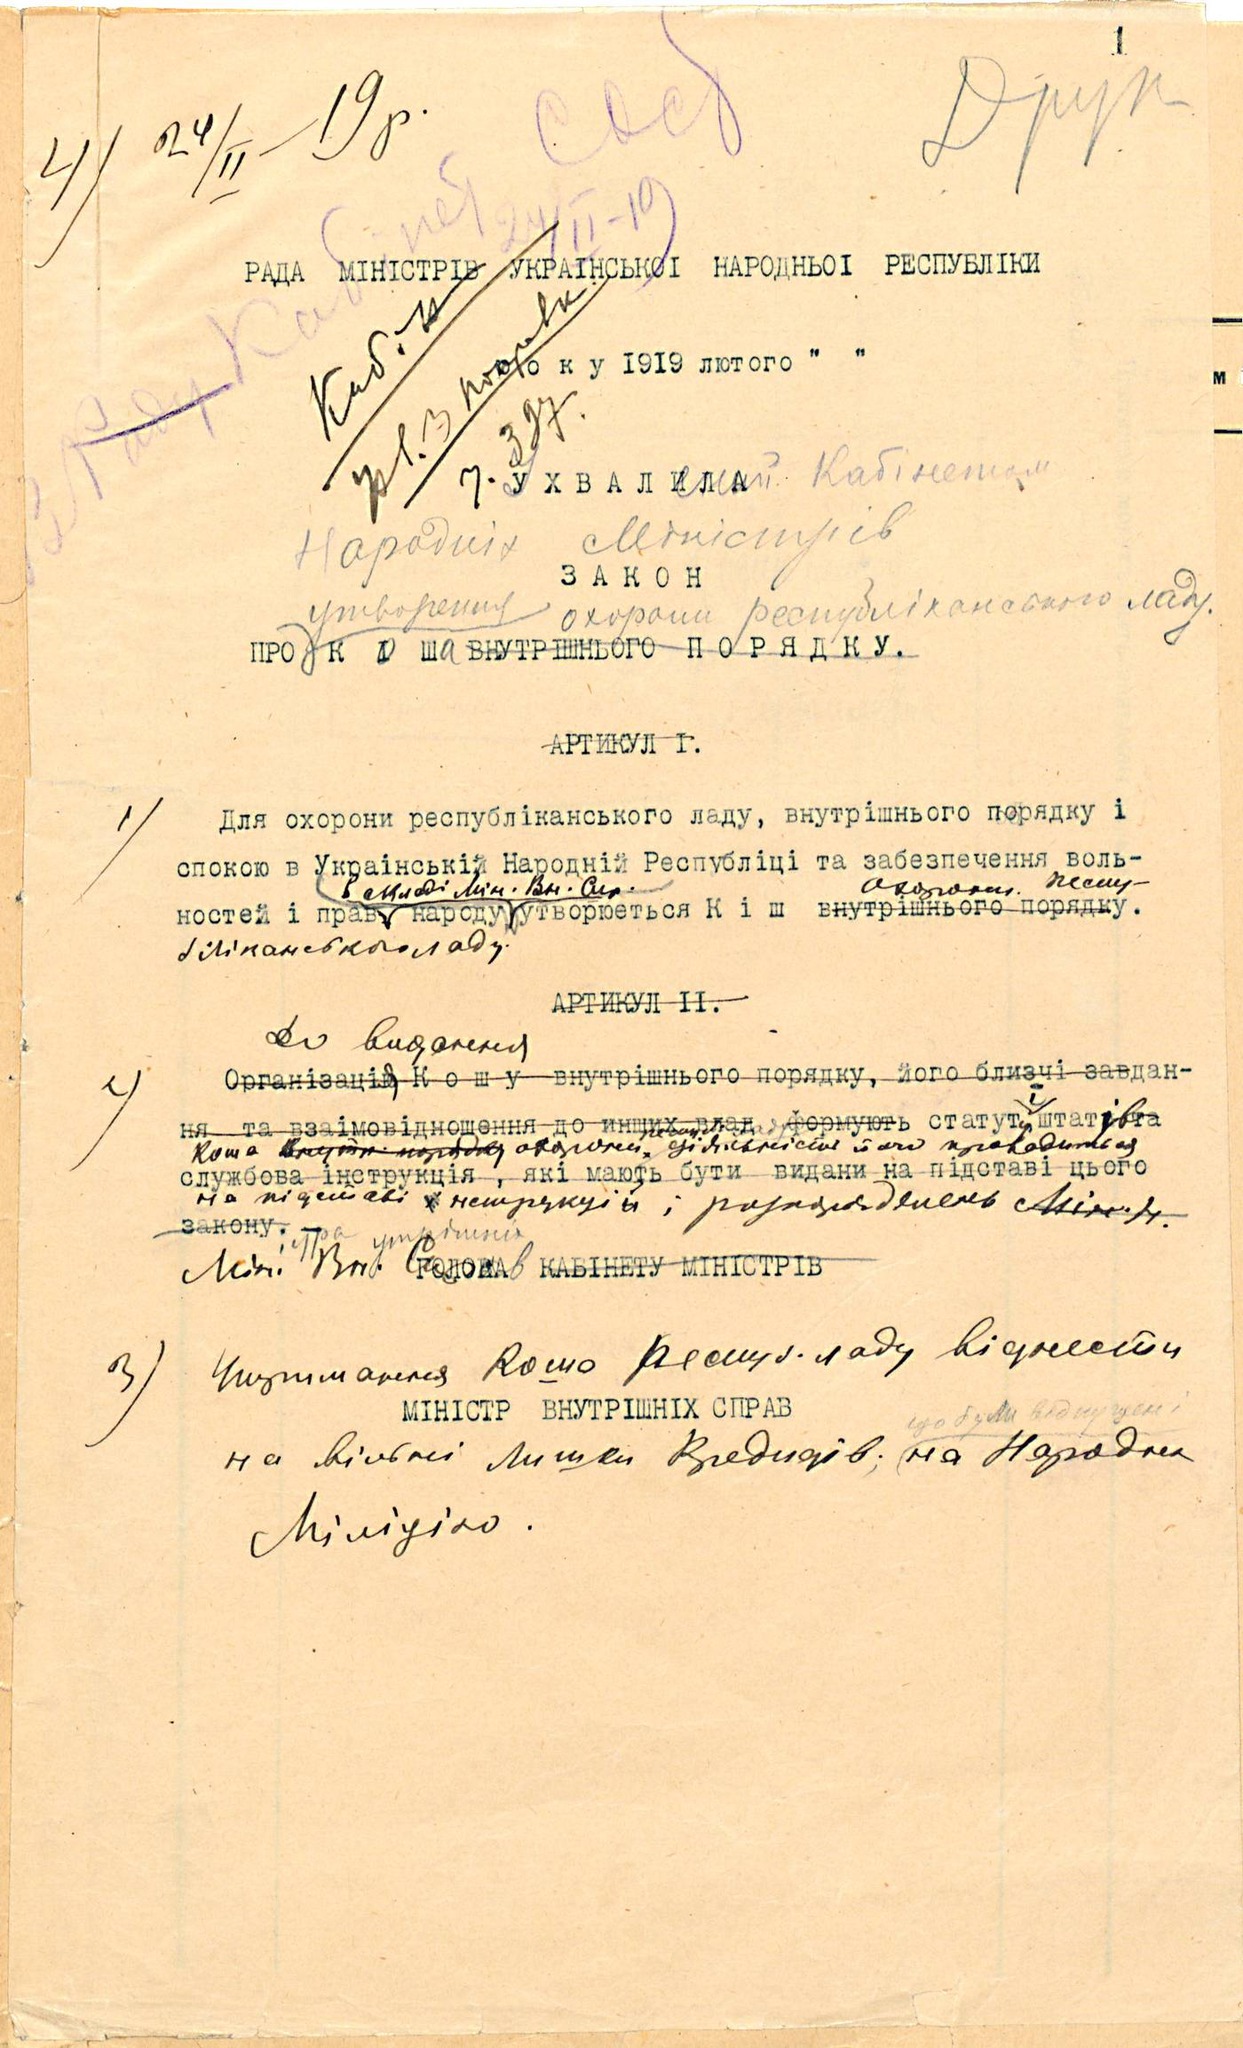 1
Друк
4) 24/II 19 р.
24/II-19
В Раду Кабінет
РАДА МІНІСТРІВ УКРАІНСЬКОІ НАРОДНЬОІ РЕСПУБЛІКИ
Каб. М
року 1919 лютого " "
ч. УХВАЛИЛА Кабінетом
Народніх Міністрів
ЗАКОН
утворення охорони республіканського ладу.
ПРО КОША ВНУТРІШНЬОГО ПОРЯДКУ.
АРТИКУЛ І.
1) Для охорони республіканського ладу, внутрішнього порядку і
спокою в Українській Народній Республіці та забезпечення воль-
в складі Мін. Вн. Спр. охорони респу-
ностей і прав народу утворюеться К і ш внутрішнього порядку.
бліканського ладу.
АРТИКУЛ ІІ.
До видання
2) Організацій Кошу внутрішнього порядку, його близчі завдан-
ня та взаімовідношення до инших влад формують статут і штатів та
Коша внутр. порядку охорони діяльність його провадиться
службова інструкція, які мають бути видани на підставі цього
на підставі інструкцій і розпоряджень Мін.
закону.
Мін. Вн. Справ ГОЛОВА КАБІНЕТУ МІНІСТРІВ
3) Утримання Коша Респуб. ладу віднести
МІНІСТР ВНУТРІШНІХ СПРАВ
що були відпущені
на вільні лишки Кредитів, на Народню
Міліцію.